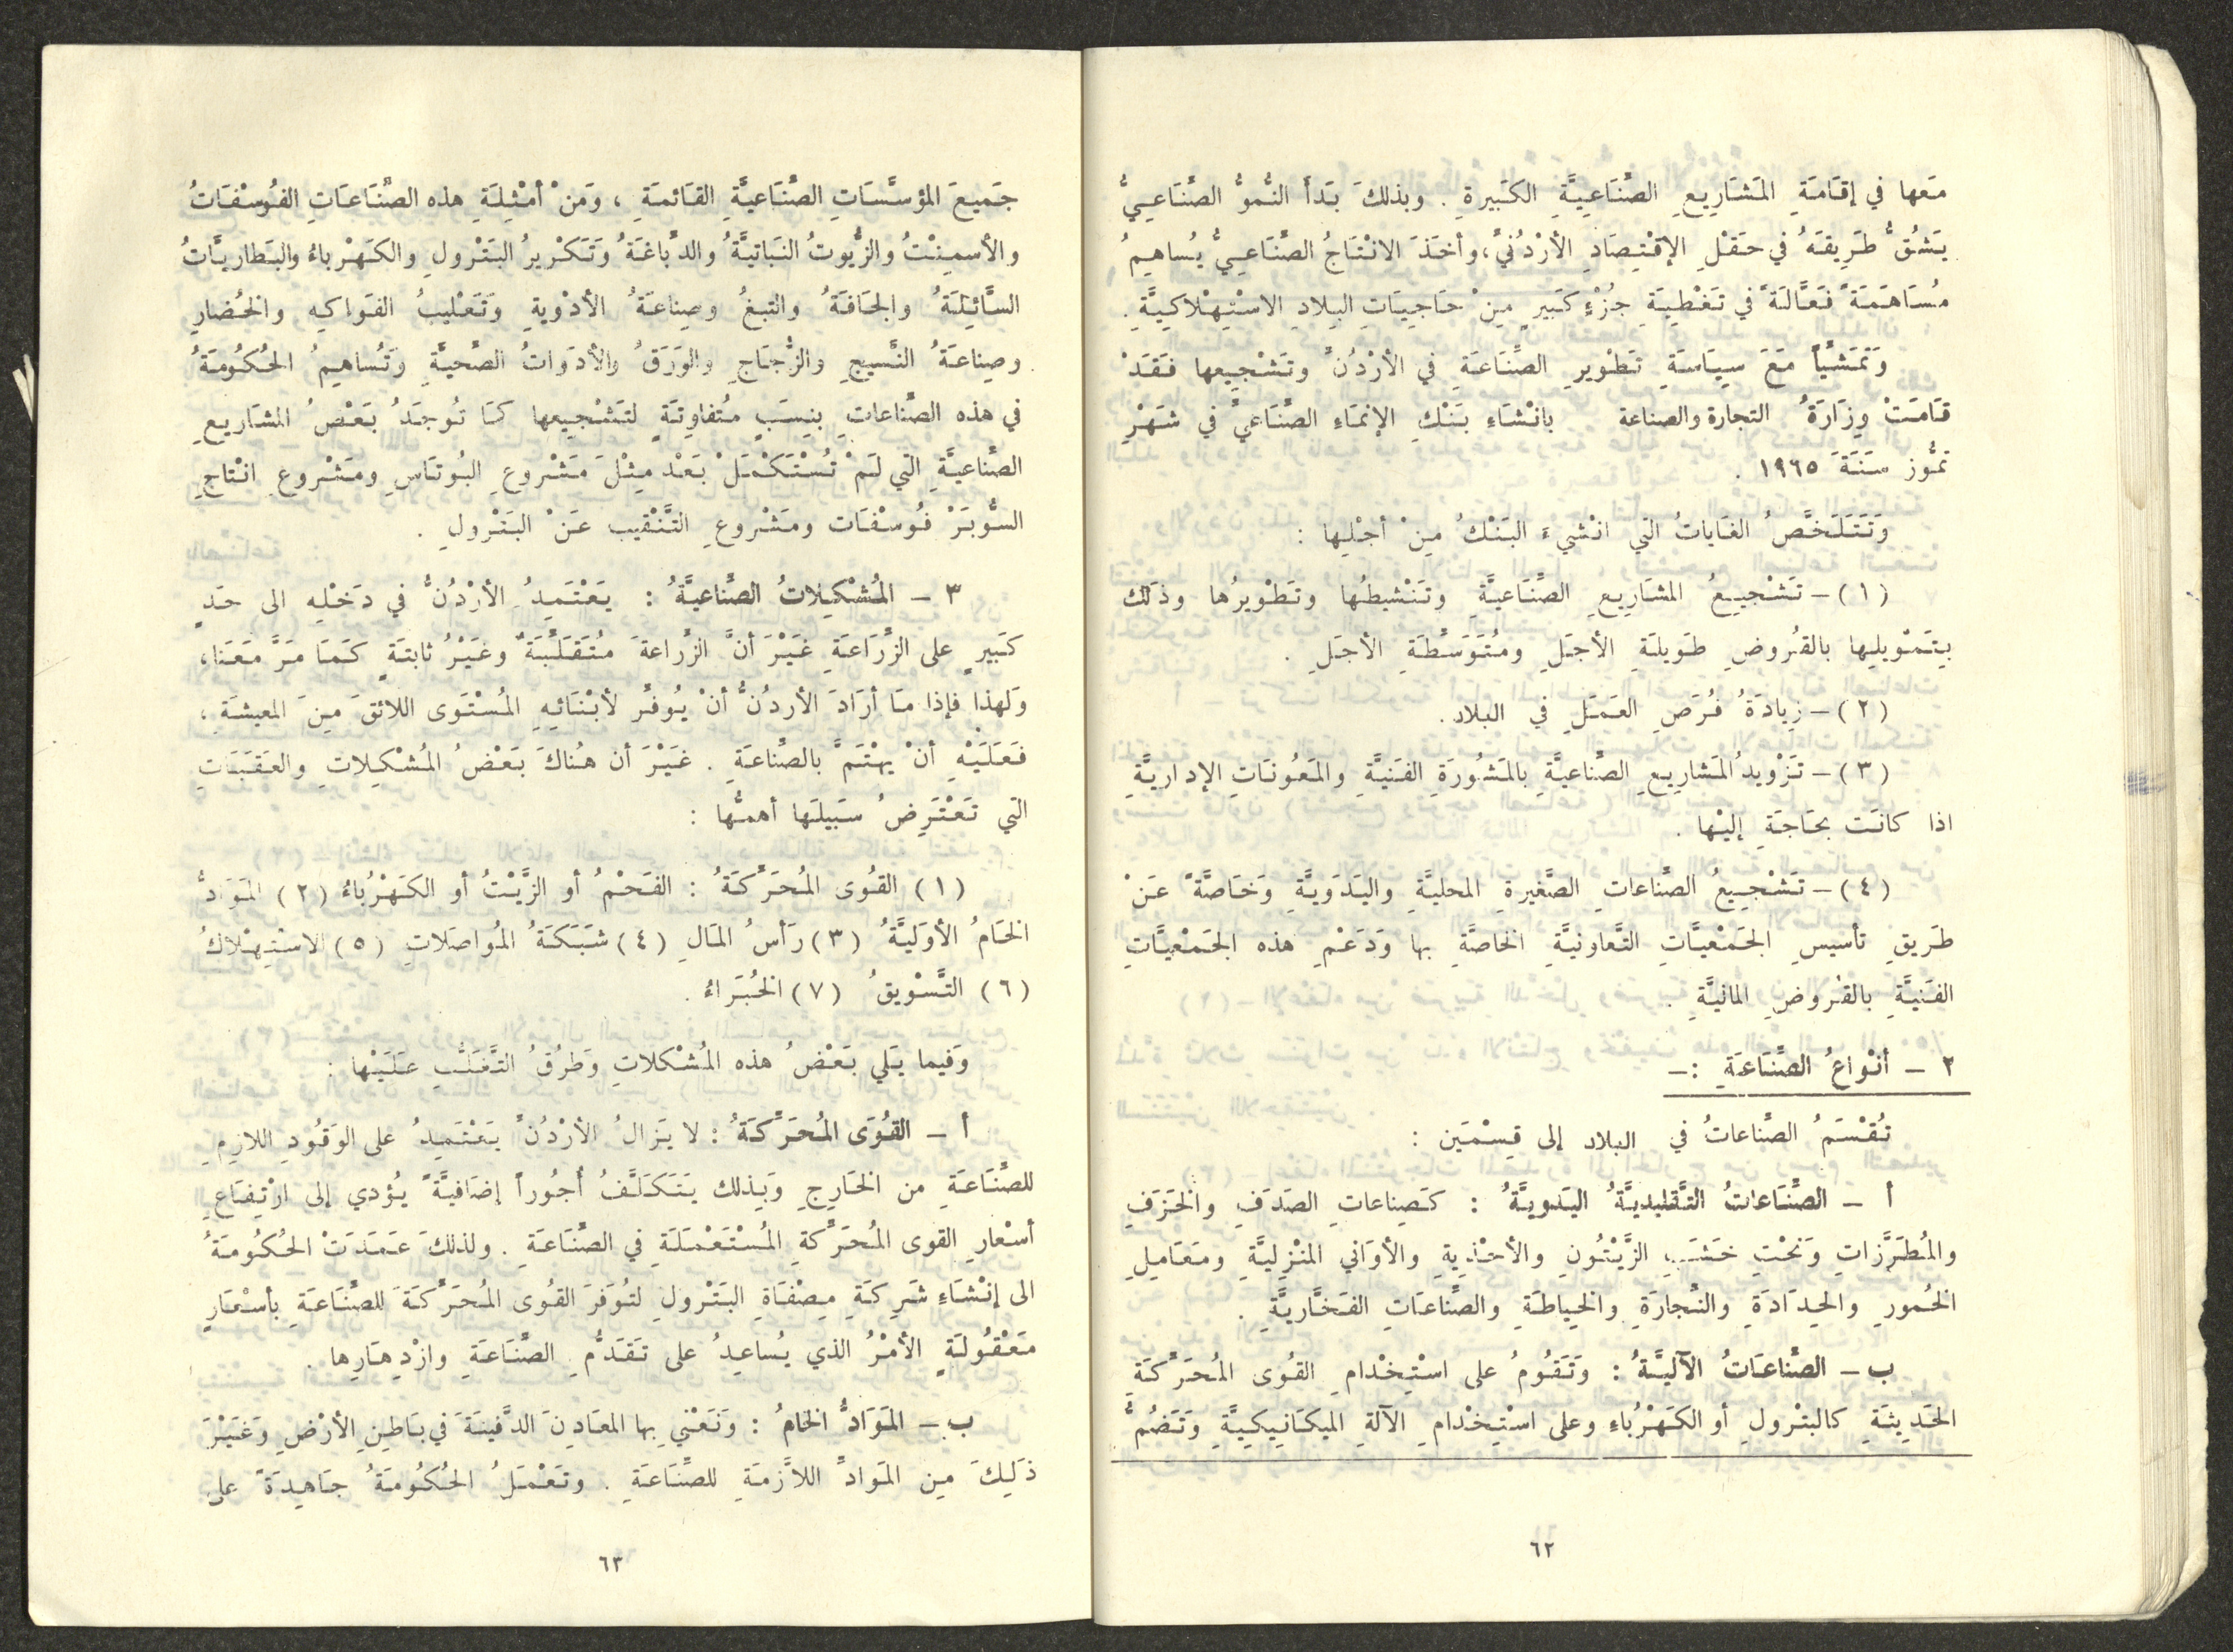 مَعها في إقَامَةِ المَشَارِيعِ الصِّنَاعِيَّةِ الكَبِيرةِ . وبذلكَ بَدَأَ النُّموُّ الصِّنَاعِيُّ
يَشُقُّ طَرِيقَهُ في حَقْلِ الإقْتِصَادِ الأرْدُنيِّ ، وأخَذَ الانْتَاجُ الصِّنَاعِيُّ يُساهِمُ
مُسَاهَمَةً فَعَّالَةً في تَغْطِيَةِ جُزْءٍ كَبيرٍ مِنْ حَاجِيَاتِ البِلادِ الاسْتِهْلاكِيَّةِ .
وَتَمَشِّيًا مَعَ سِيَاسَةِ تَطْويرِ الصِّنَاعَةِ في الأرْدُنِّ وتَشْجِيعها فَقَدْ
قَامَتْ وِزَارَةُ التجارة والصناعة بانْشَاءِ بَنْكِ الإنمَاءِ الصِّنَاعيِّ في شَهْرِ
تمُّوز سَنَةَ ١٩٦٥ .
وَتَتَلَخَّصُ الغَاياتُ التي انْشيءَ البَنْكُ مِنْ أجْلِها :
( ١ ) – تَشْجِيعُ المشَارِيعِ الصِّنَاعيَّةِ وتَنْشيطُها وتَطْويرُها وذَلك
بِتَمْويلِها بالقُروضِ طَويلَةِ الأجَلِ ومُتَوَسِّطَةِ الأجَلِ .
( ٢ ) – زِيادَةُ فُرَصِ العَمَلِ في البلاد .
( ٣ ) – تَزْويدُ المَشاريعِ الصِّناعيَّةِ بالمَشُورَةِ الفَنيَّةِ والمَعُونَاتِ الإداريَّةِ
اذا كانَت بحَاجَةٍ إليْها .
( ٤ ) – تَشْجِيعُ الصِّناعاتِ الصَّغيرةِ المحليَّةِ واليَدَويَّةِ وَخَاصَّةً عَنْ
طَريقِ تأسيسِ الجَمْعيَّاتِ التَّعاونيَّةِ الخاصَّةِ بها وَدَعَمِ هذه الجَمْعيَّاتِ
الفَنيَّةِ بالقُروضِ الماليَّةِ .
٢ – أنْواعُ الصِّنَاعَةِ : –
تُقْسَمُ الصِّناعاتُ في البلاد إلى قِسْمَين :
أ – الصِّنَاعاتُ التَّقليديَّةُ اليَدويَّةُ : كَصِناعاتِ الصَدَفِ والخَزَفِ
والمُطَرَّزاتِ وَنحْتِ خَشَبِ الزَّيْتُونِ والأحْذِيةِ والأوَاني المنْزِليَّةِ ومَعَامِلِ
الخُمورِ والحِدَادَةِ والنِّجارَةِ والخِياطَةِ والصِّناعَاتِ الفَخَّاريَّةِ .
ب – الصِّناعَاتُ الآليَّةُ : وَتَقُومُ على اسْتِخْدامِ القُوى المُحَرِّكَةِ
الحَدِيثَةِ كالبتْرولِ أو الكَهْرُباءِ وعلى اسْتِخْدامِ الآلةِ الميكَانِيكِيَّةِ وَتَضُمُّ
٦٢
جَميعَ المؤسَّسَاتِ الصِّنَاعيَّةِ القَائمَةِ ، وَمَنْ أمْثِلَةِ هذه الصِّنَاعَاتِ الفُوسْفَاتُ
والأسمِنْتُ والزُّيوتُ النَباتيَّةُ والدِّباغَةُ وَتَكْريرُ البَتْرولِ والكَهْرباءُ والبَطاريَّاتُ
السَّائِلَةُ والجَافَةُ والتبغُ وصِناعَةُ الأدْويةِ وَتَعْليبُ الفَواكِه والخُضارِ
وصِناعَةُ النَّسِيجِ والزُّجَاجِ والوَرَقُ والأدَواتُ الصِّحيَّةِ وَتُساهِمُ الحُكُومَةُ
في هذه الصِّناعاتِ بنِسَبٍ مُتفاوِتَةٍ لتَشْجِيعها كمَا تُوجَدُ بَعْضُ المشَاريعِ
الصِّناعيَّةِ التي لَمْ تُسْتَكْمَلْ بَعْد مِثْلَ مَشْروعِ البُوتَاسِ ومَشْروعِ انْتاجِ
السُّوبَرْ فُوسْفَات ومَشْروعِ التَّنْقيب عَنْ البَتْرولِ .
٣ – المُشْكِلاتُ الصِّناعيَّةُ : يَعْتَمِدُ الأرْدُنُّ في دَخْلِهِ الى حَدٍ
كَبيرٍ على الزِّرَاعَةِ غَيْرَ أنَّ الزِّراعةَ مُتَقَلِّبَةٌ وغَيْرُ ثابتَةٍ كَمَا مَرَّ مَعَنا،
وَلهذا فإذا مَا أرَادَ الأردُنُّ أنْ يُوفِّر لأبْنَائِهِ المُسْتَوى اللائقَ مِنَ المعيشَةِ ،
فَعَلَيْهِ أنْ يهْتَمَّ بالصِّناعَةِ . غَيْرَ أن هُناكَ بَعْضُ المُشْكِلاتِ والعَقَبَاتِ
التي تَعْتَرِضُ سَبيلَها أهمُّها :
( ١ ) القُوى المُحَرِّكَةُ : الفَحْمُ أو الزَّيْتُ أو الكَهْرُباءُ ( ٢ ) المَوادُّ
الخَامُ الأوَليَّةُ ( ٣ ) رَأسُ المَالِ ( ٤ ) شَبَكَةُ المُواصَلاتِ ( ٥ ) الاسْتِهْلاكُ
( ٦ ) التَّسْويقُ ( ٧ ) الخُبَراءُ .
وَفيما يَلي بَعْضُ هذه المُشْكلاتِ وَطرُقُ التَّغَلُّبِ عَلَيْها :
أ – القُوَى المُحَرِّكَةُ : لا يَزالُ الأرْدُنُّ يَعْتَمِدُ على الوَقُودِ اللازِمِ
للصِّنَاعَةِ من الخَارجِ وَبِذلك يَتَكَلَّفُ أُجُوراً إضَافيَّةً يُؤدي إلى ارْتِفَاعِ
أسْعَارِ القوى المُحَرِّكةِ المُسْتَعْمَلَةِ في الصِّنَاعَةِ . ولذلكَ عَمَدَتْ الحُكُومَةُ
الى إنْشَاءِ شَرِكَةِ مِصْفَاةِ البَتْرولِ لتُوَفرَ القُوى المُحَرِّكَةَ للصِّنَاعَةِ بأسْعَارٍ
مَعْقُولَةٍ الأمْرُ الذي يُساعِدُ على تَقَدُّمِ الصِّنَاعَةِ وازْدِهَارِها .
ب – المَوَادُّ الخامُ : وَنَعْني بها المعَادِنَ الدَّفينَةَ في بَاطِنِ الأرْضِ وَغَيْرَ
ذَلِكَ مِن المَوادِّ اللاَّزمَةِ للصِّنَاعَةِ . وتَعْمَلُ الحُكُومَةُ جَاهِدَةً على
٦٣